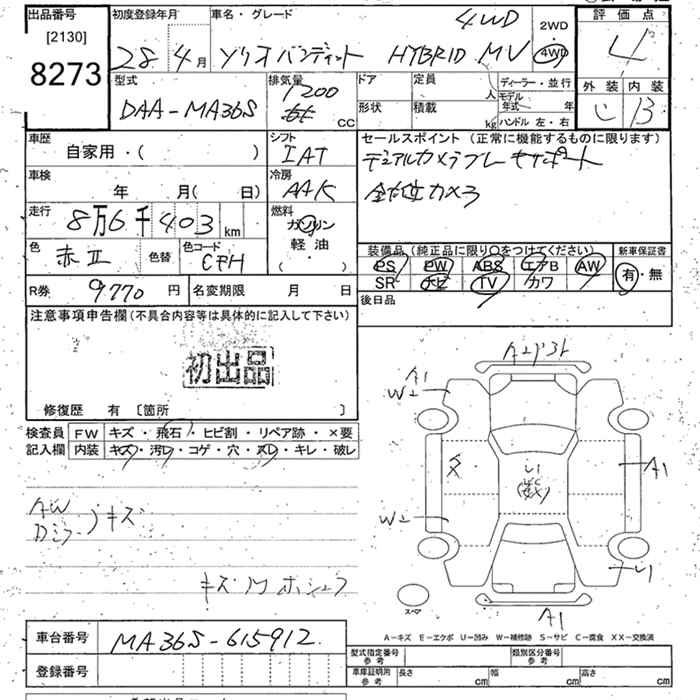 出品番号 初度登録年月 車名・グレード 4WD 2WD 評価点
[2130] 28年4月 ソリオバンディット HYBRID MV 4WD 4
8273 外装 内装
型式 排気量 ドア 定員 人 ディーラー・並行 B
DAA-MA36S 1200 CC 形状 積載 kg モデル年式 年
ハンドル 左・右
車歴 シフト セールスポイント(正常に機能するものに限ります)
自家用・( ) IAT デュアルカメラブレーキサポート
車検 冷房 全方位カメラ
年 月(日) AAK
走行 燃料
8万6千403km ガソリン
色 赤II 色替 色コード CPH 軽油
( ・ )
装備品(純正品に限り○をつけてください) 新車保証書
PS PW ABS エアB AW 有・無
SR ナビ TV カワ
R券 9770円 名変期限 月 日 後日品
注意事項申告欄(不具合内容等は具体的に記入して下さい)
初出品
修復歴 有 〔箇所 〕
検査員 FW キズ・飛石・ヒビ割・リペア跡・×要
記入欄 内装 キズ・汚レ・コゲ・穴・スレ・キレ・破レ
AW
Dミラ キズ
A1
W2
W2
A1
A1
スペア
A-キズ E-エクボ U-凹み W-補修跡 S-サビ C-腐食 XX-交換済
車台番号 MA36S-615912
登録番号
型式指定番号 参考 類別区分番号 参考
車庫証明用 参考 長さ cm 幅 cm 高さ cm